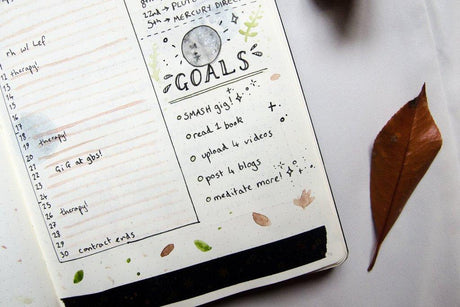 22nd → PLUTO
5th → MERCURY DIREC
rh w/ Lef
12 therapy!
13
14
15
16
17
18
19 therapy!
20
21
22 GIG at gbs!
23
24
25
26 therapy!
27
28
29
30 contract ends
GOALS
o SMASH gig!
o read 1 book
o upload 4 videos
o post 4 blogs
o meditate more!